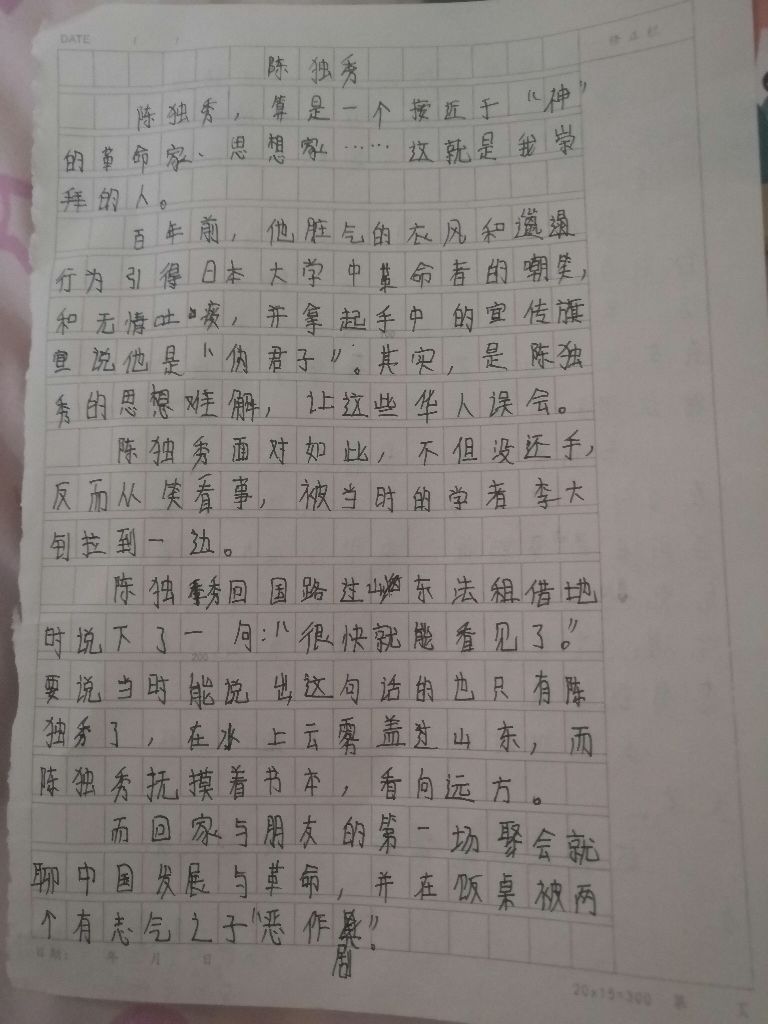 DATE ( )
修正栏
陈独秀
陈独秀，算是一个接近于“神”
的革命家、思想家……这就是我崇
拜的人。
百年前，他脏气的衣风和邋遢
行为引得日本大学中革命者的嘲笑，
和无悔吐痰，并拿起手中的宣传旗
宣说他是“伪君子”。其实，是陈独
秀的思想难解，让这些华人误会。
陈独秀面对如此，不但没还手，
反而从笑看事，被当时的学者李大
钊拉到一边。
陈独秀回国路过山东法租借地
时说下了一句：“很快就能看见了。”
要说当时能说出这句话的也只有陈
独秀了，在水上云雾盖过山东，而
陈独秀抚摸着书本，看向远方。
而回家与朋友的第一场聚会就
聊中国发展与革命，并在饭桌被两
个有志气之子“恶作剧”。
日期： 年 月 日
20x15=300 第 页